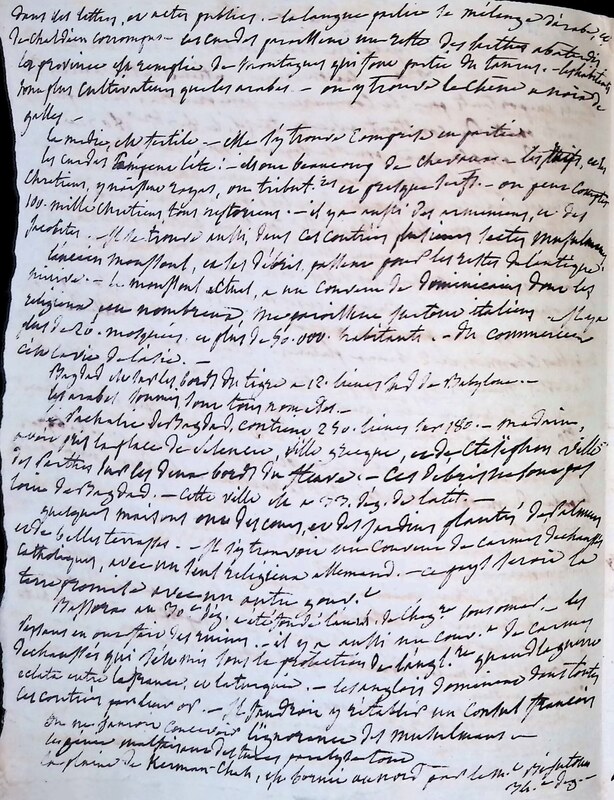 dans des lettres, et actes publics. - la langue parlée se mélange d'arabe, et
de chaldéen corrompu - les curdes paroissent un reste des parthes abatardis
la province est remplie de montagnes qui font partie du taurus. - les habitants
sont plus cultivateurs que les arabes - on y trouve le chêne a noix de
galles -
la medie, est fertile - elle s'y trouve comprise en partie
les curdes - ils ont beaucoup de chevaux - les juifs, et les
chretiens, y on peut compter
100. mille chretiens, tous nestoriens. - il y a aussi des armeniens, et des
jacobites. - il se trouve aussi, dans ces contrées plusieurs sectes musulmanes
l'ancien moussoul, et ses débris, passent pour les restes de l'antique
ninive. - le moussoul actuel, a un couvent de dominicains dont les
religieux, peu nombreux, me paroissent surtout italiens - il y a
plus de 20. mosquées, et plus de 50.000. habitants. - du commerce
c'est la vie de l'asie. -
Bagdad est sur les bords du tigre a 12. lieues sud de Babylone. -
les arabes sont tous
le Pachalic de Bagdad, contient 250. lieues sur 180. - madain,
la place de seleucie, ville grecque, et de Ctesiphon ville
des Parthes sur les deux bords du fleuve. - ces débris ne sont pas
loin de Bagdad. - cette ville est a 33. deg. de latit. -
quelques maisons ont des cours, et des jardins plantés de palmiers
et de belles terrasses. - il s'y trouvoit un couvent de carmes dechaussés
catholiques, avec un seul religieux allemand. - ce pays seroit la
terre promise avec un autre gouv.t
Bassora au 30e deg. - les
persans en ont fait des ruines. - il y a aussi un couv.t de carmes
dechaussés qui sous la protection de l'angl.re quand la guerre
eclata entre la france, et la turquie. - les anglois dominent dans toutes
ces contrées par leur or. - il faudroit y retablir un consul françois
on ne sauroit concevoir l'ignorance des musulmans -
le génie malfaisant des turcs partout
la plaine de Kerman-Chah, est bornée au nord par le m.t Bisutoun
34.e dg -